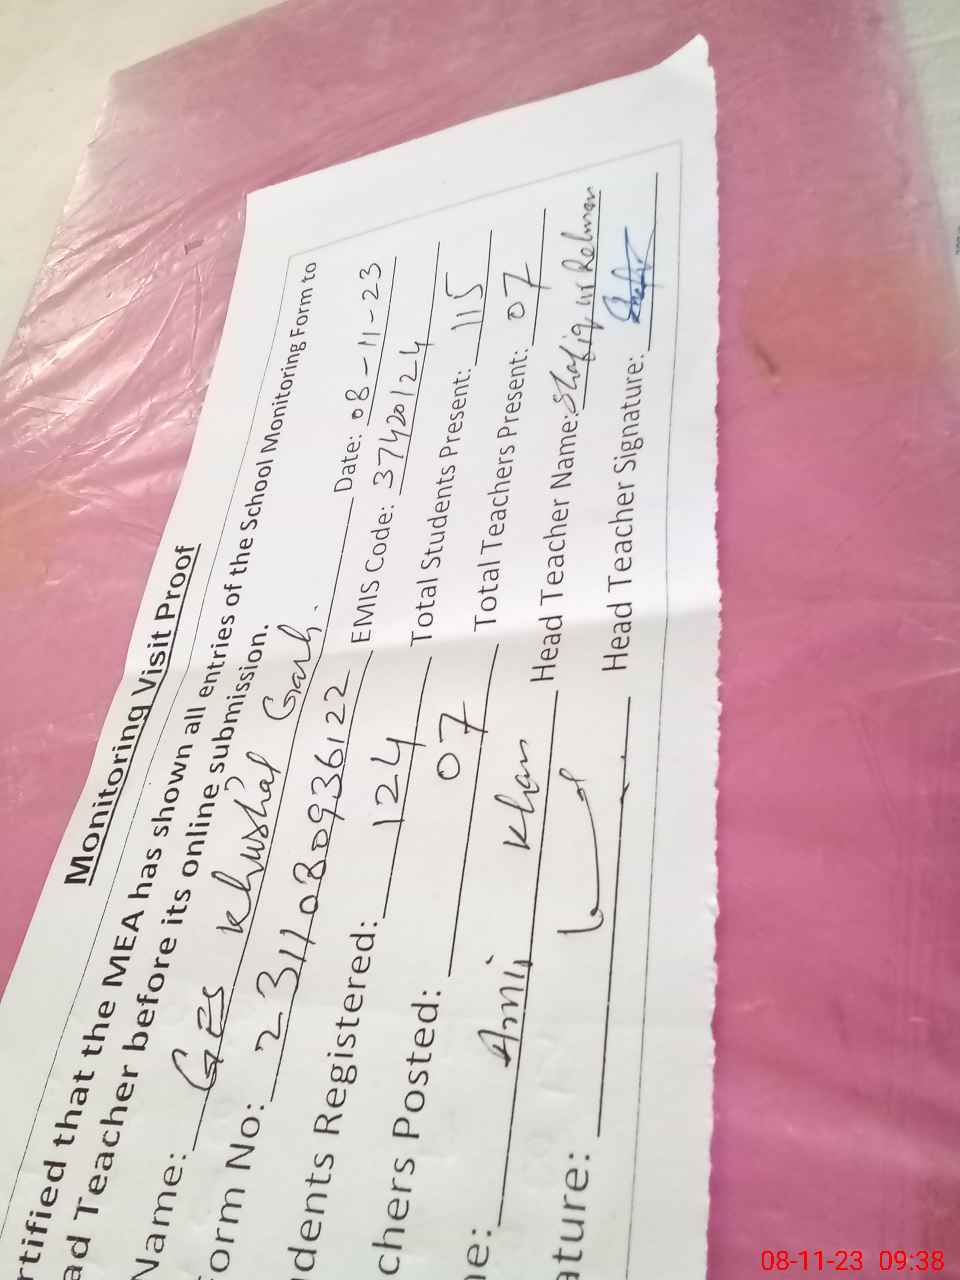 Monitoring Visit Proof
rtified that the MEA has shown all entries of the School Monitoring Form to
ad Teacher before its online submission.
Name: GPS Khushal Garh. Date: 08-11-23
Form No: 2311080936122 EMIS Code: 37420124
dents Registered: 124 Total Students Present: 115
chers Posted: 07 Total Teachers Present: 07
e: Khan Head Teacher Name: Shafiq ur Rehman
ature: Head Teacher Signature:
08-11-23 09:38